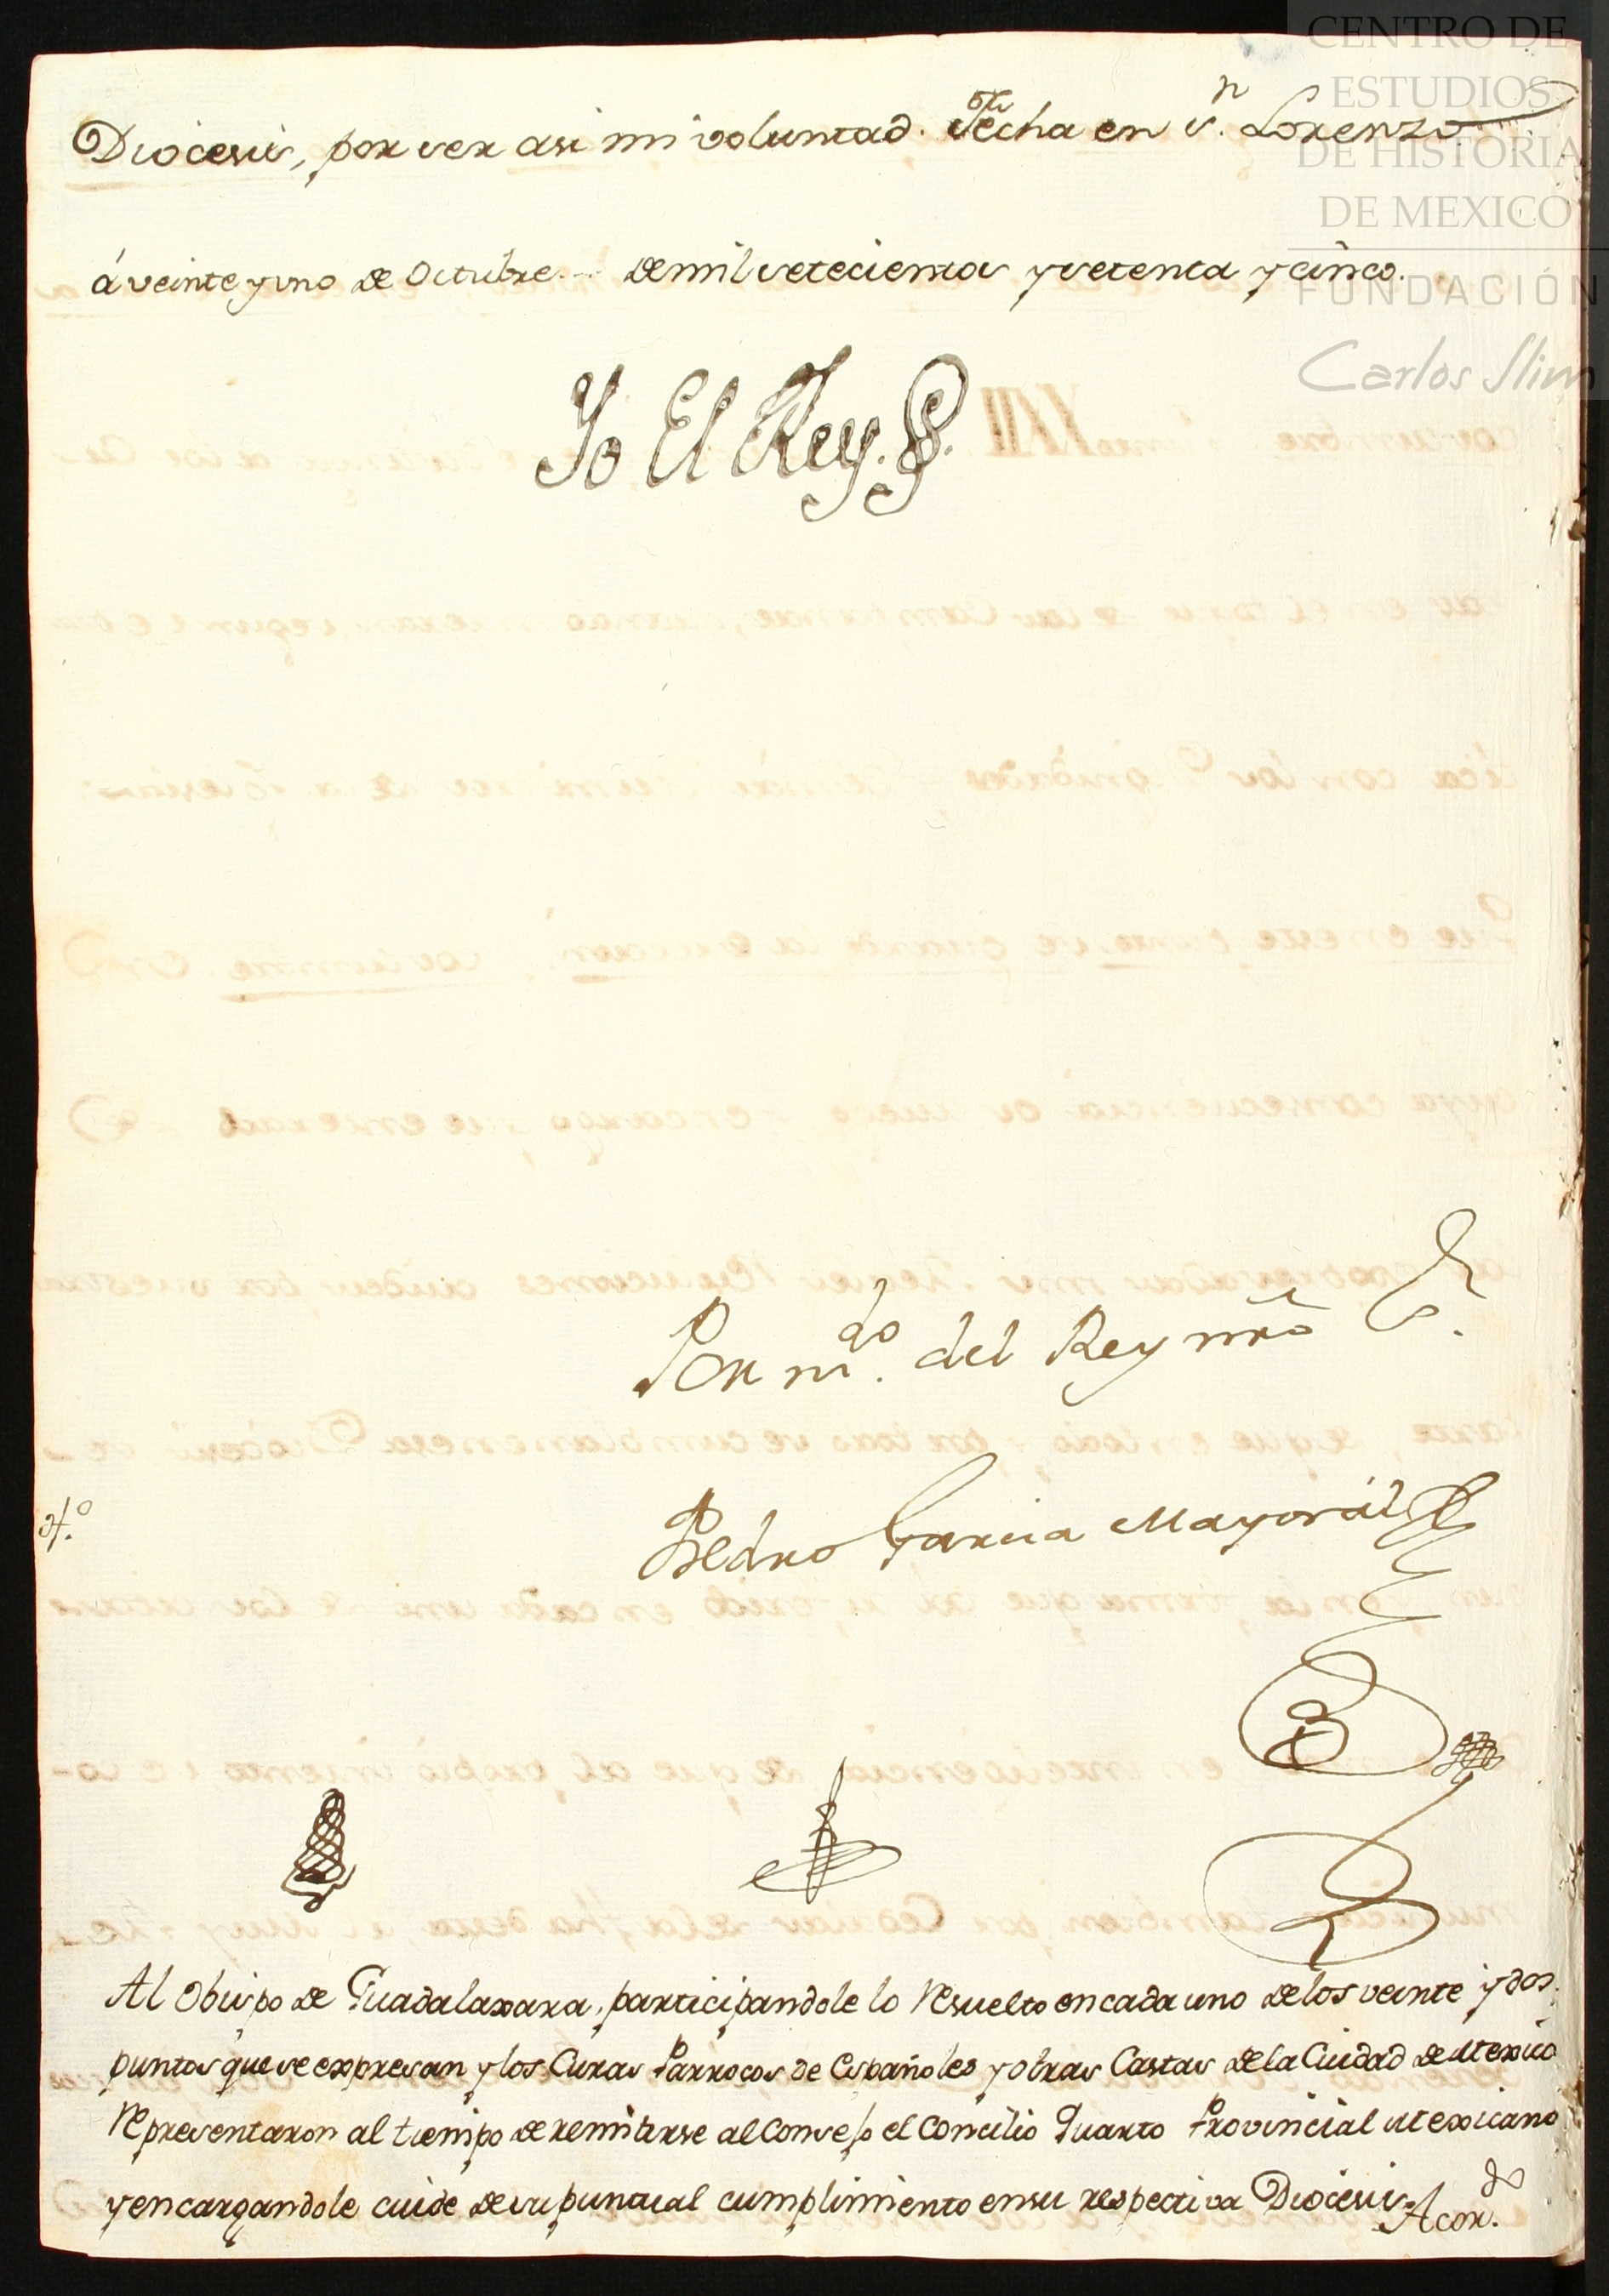 Diocesis, por ser asi mi voluntad. Fecha en S.n Lorenzo
á veinte y uno de Octubre... de mil setecientos y setenta y cinco.
Yo El Rey.
Por m.do del Rey nrô S.
Pedro Garcia Mayorál
Al Obispo de Guadalaxara, participandole lo resuelto en cada uno de los veinte y dos
puntos que se expresan y los Curas Parrocos de Españoles y otras Castas de la Ciudad de Mexico
representaron al tiempo de remitirse al Consejo el Concilio Quarto Provincial Mexicano
y encargandole cuide de su puntual cumplimiento en su respectiva Diocesis. Acor.do
CENTRO DE
ESTUDIOS
DE HISTORIA
DE MEXICO
FUNDACIÓN
Carlos Slim